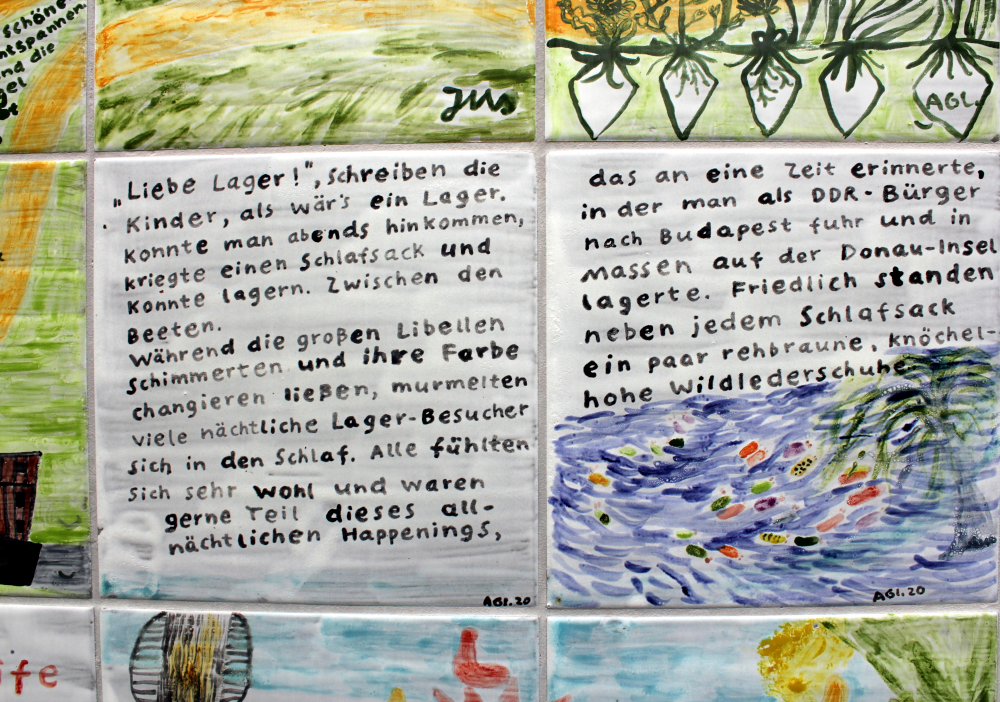 schöne
ntspannen
nd die
gel
Jus
AGL.
„Liebe Lager!", schreiben die
Kinder, als wär's ein Lager.
Konnte man abends hinkommen,
kriegte einen Schlafsack und
konnte lagern. Zwischen den
Beeten.
Während die großen Libellen
schimmerten und ihre Farbe
changieren ließen, murmelten
viele nächtliche Lager-Besucher
sich in den Schlaf. Alle fühlten
sich sehr wohl und waren
gerne Teil dieses all-
nächtlichen Happenings,
AGL.20
das an eine Zeit erinnerte,
in der man als DDR-Bürger
nach Budapest fuhr und in
Massen auf der Donau-Insel
lagerte. Friedlich standen
neben jedem Schlafsack
ein paar rehbraune, knöchel-
hohe Wildlederschuhe.
AGL.20
ife